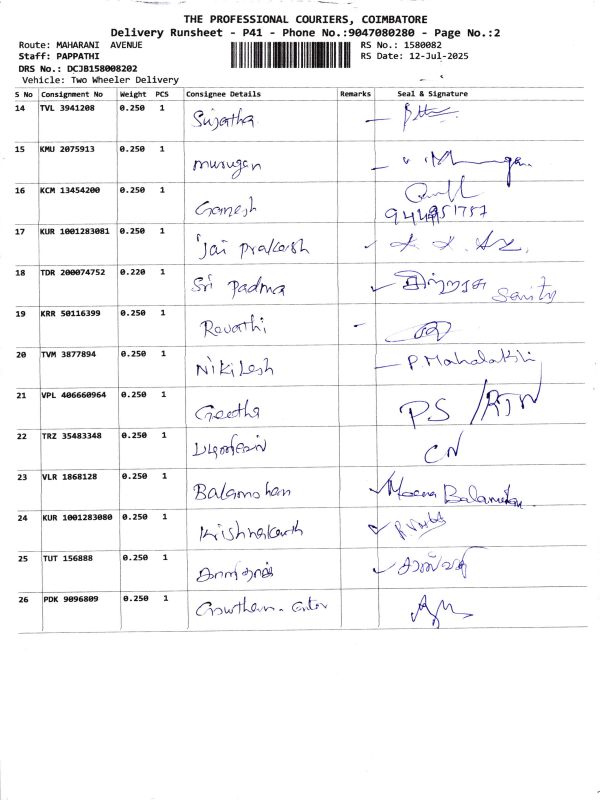 THE PROFESSIONAL COURIERS, COIMBATORE
Delivery Runsheet - P41 - Phone No.:9047080280 - Page No.:2
Route: MAHARANI AVENUE RS No.: 1580082
Staff: PAPPATHI RS Date: 12-Jul-2025
DRS No.: DCJB158008202
Vehicle: Two Wheeler Delivery
S No Consignment No Weight PCS Consignee Details Remarks Seal & Signature
14 TVL 3941208 0.250 1 Sujatha
15 KMU 2075913 0.250 1 murugan
16 KCM 13454200 0.250 1 Ganesh
17 KUR 1001283081 0.250 1 Jai prakash
18 TDR 200074752 0.220 1 Sri Padma
19 KRR 50116399 0.250 1 Revathi
20 TVM 3877894 0.250 1 Nikilesh P Mahalakshi
21 VPL 406660964 0.250 1 Geetha PS /RTN
22 TRZ 35483348 0.250 1 CN
23 VLR 1868128 0.250 1 Balamohan Meena Balamohan
24 KUR 1001283080 0.250 1 Krishnakanth
25 TUT 156888 0.250 1
26 PDK 9096809 0.250 1